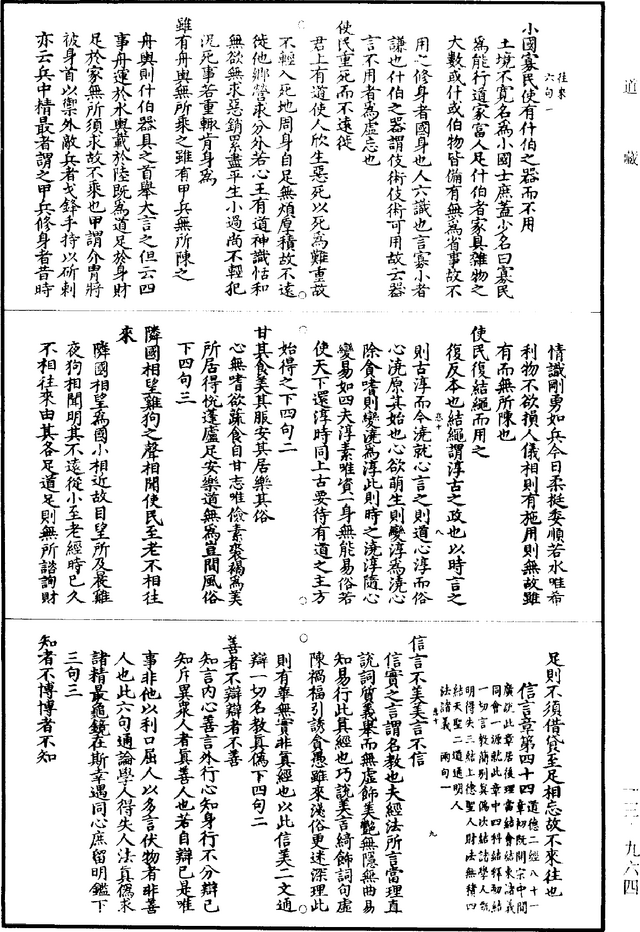 道藏
小國寡民使有什伯之器而不用
往來
六句一
土境不寬名為小國士庶蓋少名曰寡民
為能行道家富人足什伯者家具雜物之
大數或什或伯物皆備有無為省事故不
用之修身者國身也人六識也言寡小者
謙也什伯之器謂伎術伎術可用故云器
言不用者為虛忘也
使民重死而不遠徙
君上有道使人欣生惡死以死為難重故
不輕入死地周身自足無煩厚積故不遠
徙他鄉營求分外若心王有道神識恬和
無欲無求惡銷累盡平生小過尚不輕犯
況死事若重輒肯身為
雖有舟輿無所乘之雖有甲兵無所陳之
舟輿則什伯器具之首舉大言之但云四
事舟運於水輿載於陸既為道足於身財
足於家無所須求故不乘也甲謂介冑將
被身首以禦外敵兵者戈鋒手持以斫刺
亦云兵中精最者謂之甲兵修身者昔時
情識剛勇如兵今日柔挺委順若水唯希
利物不欲損人儀相則有施用則無故雖
有而無所陳也
使民復結繩而用之
復反本也結繩謂淳古之政也以時言之
則古淳而今澆就心言之則道心淳而俗
心澆原其始也心欲萌生則變淳為澆心
除食嗜則變澆為淳此則時之澆淳隨心
變易如四夫淳素唯資一身無能易俗若
使天下還淳時同上古要待有道之主方
始得之下四句二
甘其食美其服安其居樂其俗
心無嗜欲蔬食自甘志唯儉素裘褐為美
所居得悦蓬廬足安樂道無為豈間風俗
下四句三
隣國相望雞狗之聲相聞使民至老不相往
來
隣國相望為國小相近故目望所及晨雞
夜狗相聞明其不遠從小至老經時已久
不相往來由其各足道足則無所諮詢財
足則不須借貸至足相忘故不來往也
信言章第四十四
道德二經八十一
章初既開宗中間
廣説此章居後理當結會結束諸義
同會一源就此章中四科結釋初結
一切言教簡別真偽次結諸學人䟽
明得失三結上德聖人財法無積四
結天聖二道通明人
法諸義 兩句一
信言不美美言不信
信實之言謂名教也夫經法所言當理直
説詞質義舉而無虛飾美艷無隱無曲易
知易行此真經也巧説美言綺飾詞句虛
陳禍福引誘貪愚雖來淺俗更迷深理此
則有華無實非真經也以此信美二文通
辯一切名教真偽下四句二
善者不辯辯者不善
知言内心善言外行心知身行不分辯己
知斥異衆人者真善人也若自辯己是唯
事非他以利口屈人以多言伏物者非善
人也此六句通論學人得失人法真偽求
諸精最龜鏡在斯幸遇同心庶留明鑑下
三句三
知者不博博者不知
一三一九六四